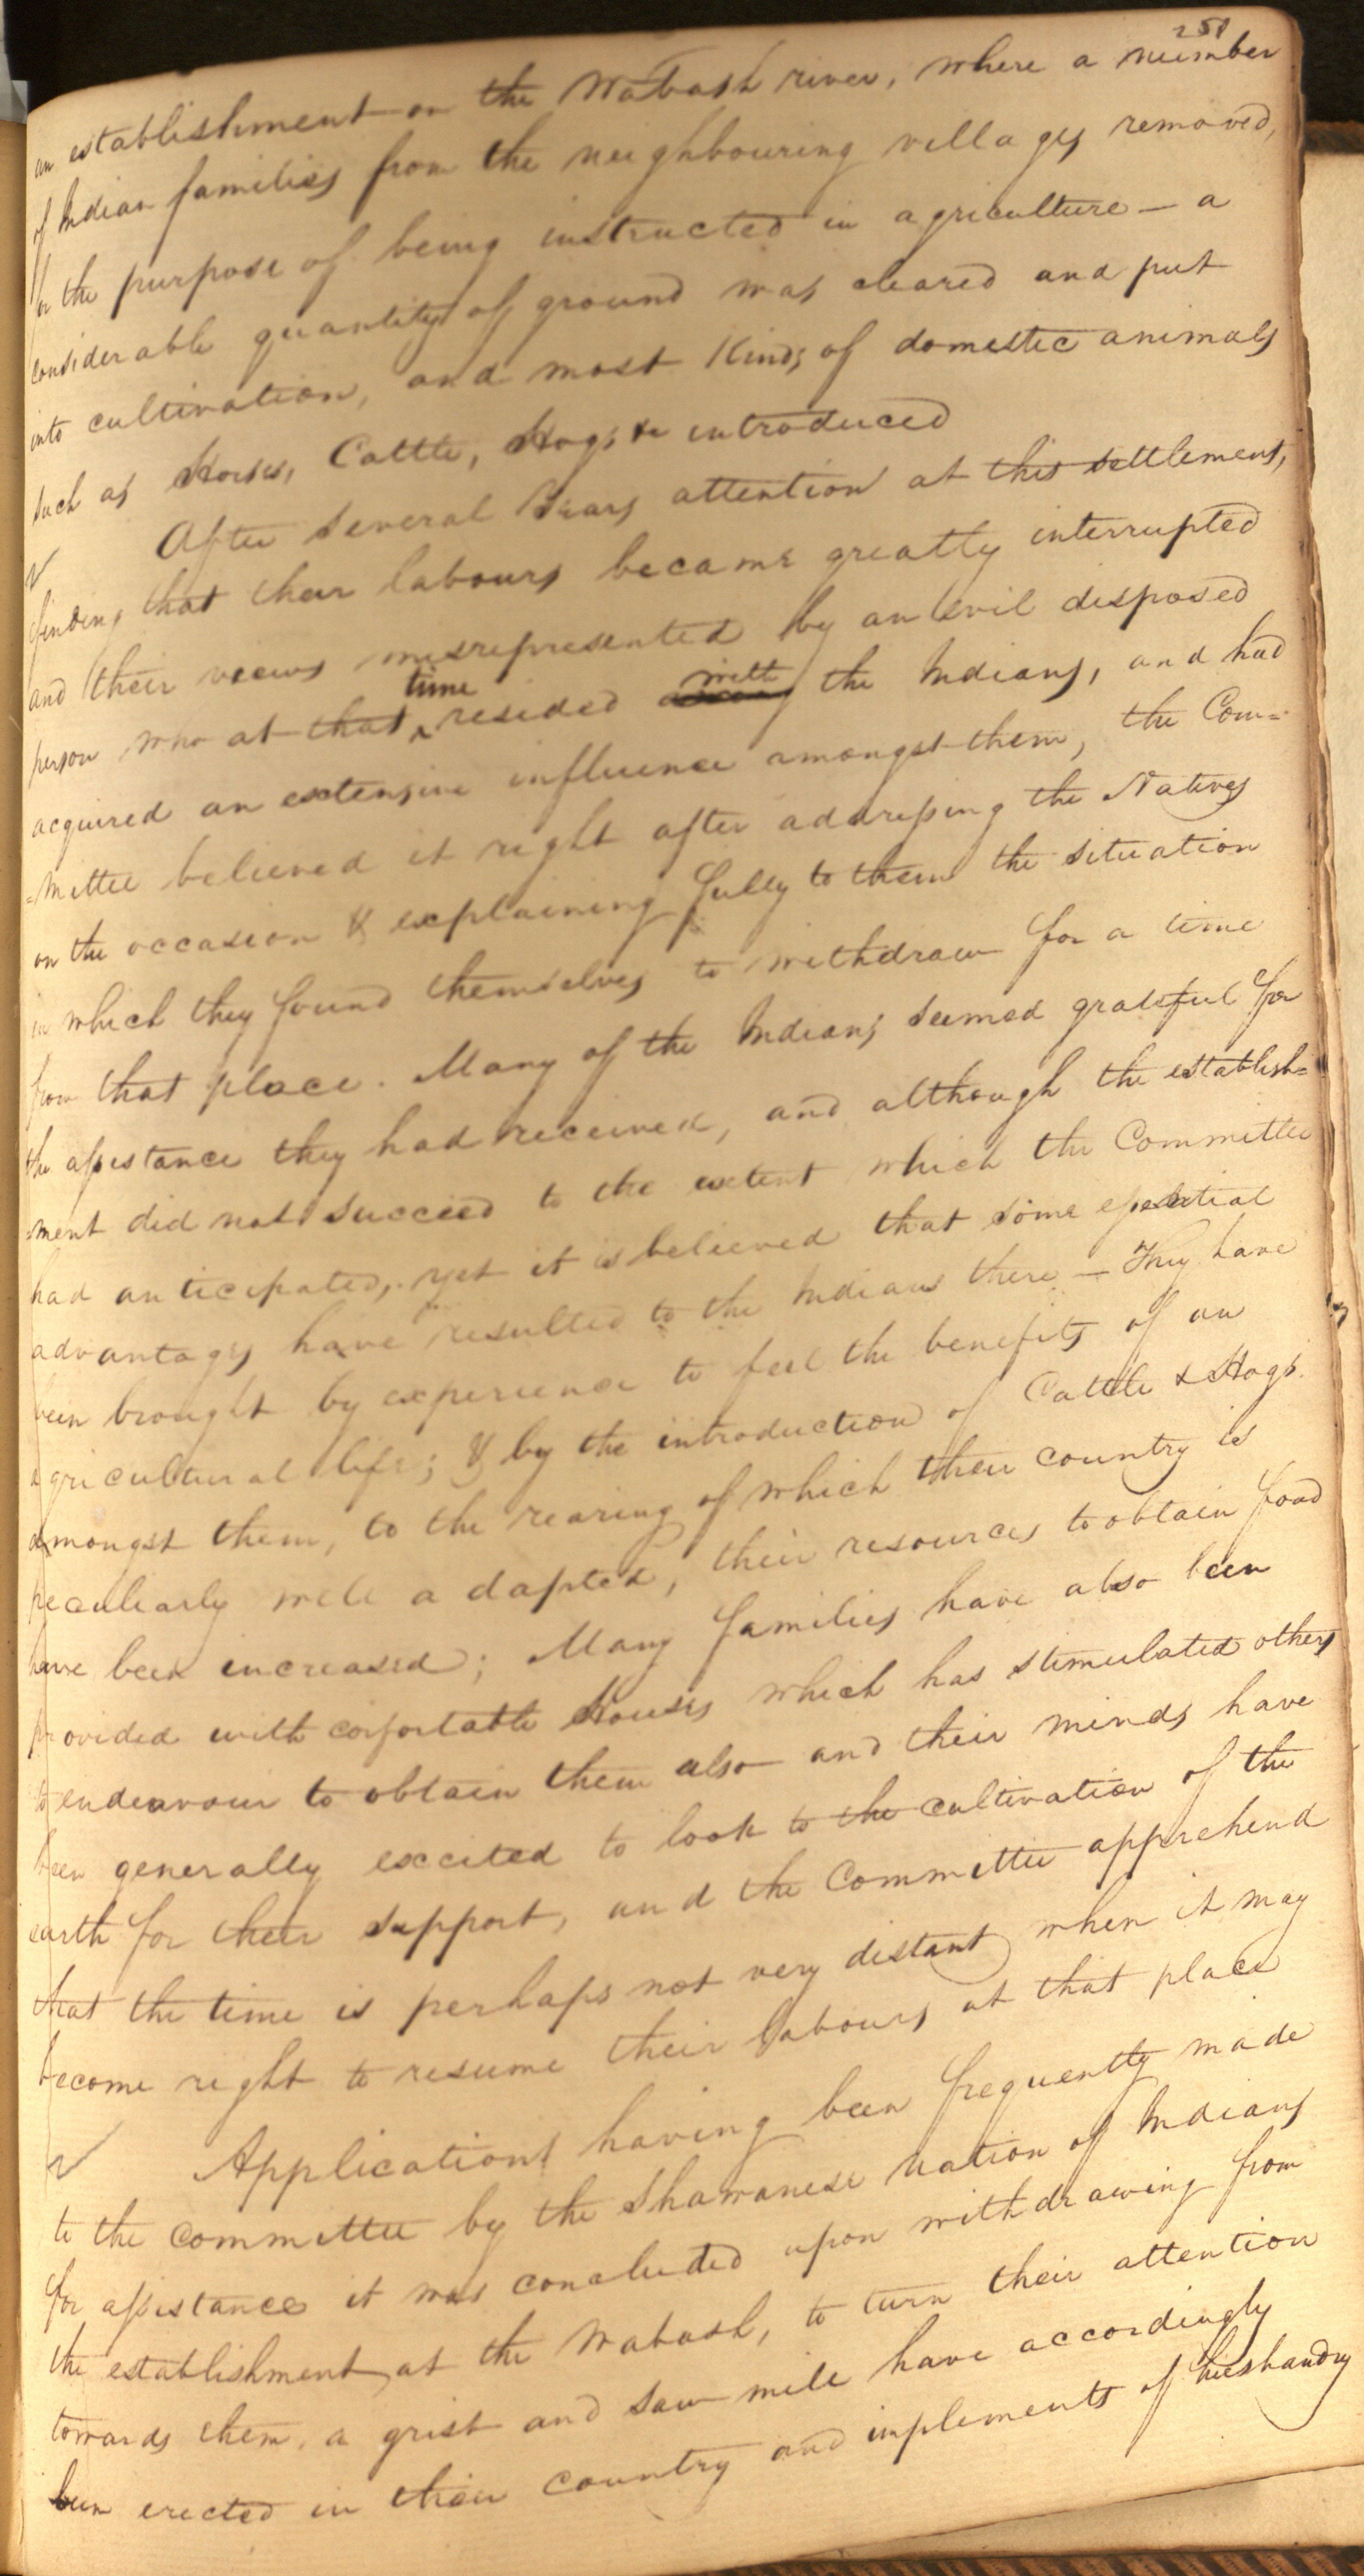 251
an establishment on the Wabash river, where a number
of Indian families from the neighbouring villages removed,
for the purpose of being instructed in agriculture — a
considerable quantity of ground was cleared and put
into cultivation, and most Kinds of domestic animals
such as Horses, Cattle, Hogs &c introduced
After several Years attention at this settlement,
finding that their labours became greatly interrupted
and their views misrepresented by an evil disposed
person who at that ^time resided with the Indians, and had
acquired an extensive influence amongst them, the Com=
=mittee believed it right after addressing the Natives
on the occasion & explaining fully to them the situation
in which they found themselves to withdraw for a time
from that place. Many of the Indians seemed grateful for
the assistance they had received, and although the establish=
=ment did not succeed to the extent which the Committee
had anticipated, yet it is believed that some essential
advantages have resulted to the Indians there — They have
been brought by experience to feel the benefits of an
agricultural life; & by the introduction of Cattle & Hogs
amongst them, to the rearing of which their country is
peculiarly well adapted, their resources to obtain food
have been increased; Many families have also been
provided with comfortable Houses which has stimulated others
to endeavour to obtain them also and their minds have
been generally excited to look to the cultivation of the
earth for their support, and the Committee apprehend
that the time is perhaps not very distant when it may
become right to resume their labours at that place
Applications having been frequently made
to the committee by the Shawanese nation of Indians
for assistance it was concluded upon withdrawing from
the establishment at the Wabash, to turn their attention
towards them, a grist and saw mill have accordingly
been erected in their country and implements of husbandry